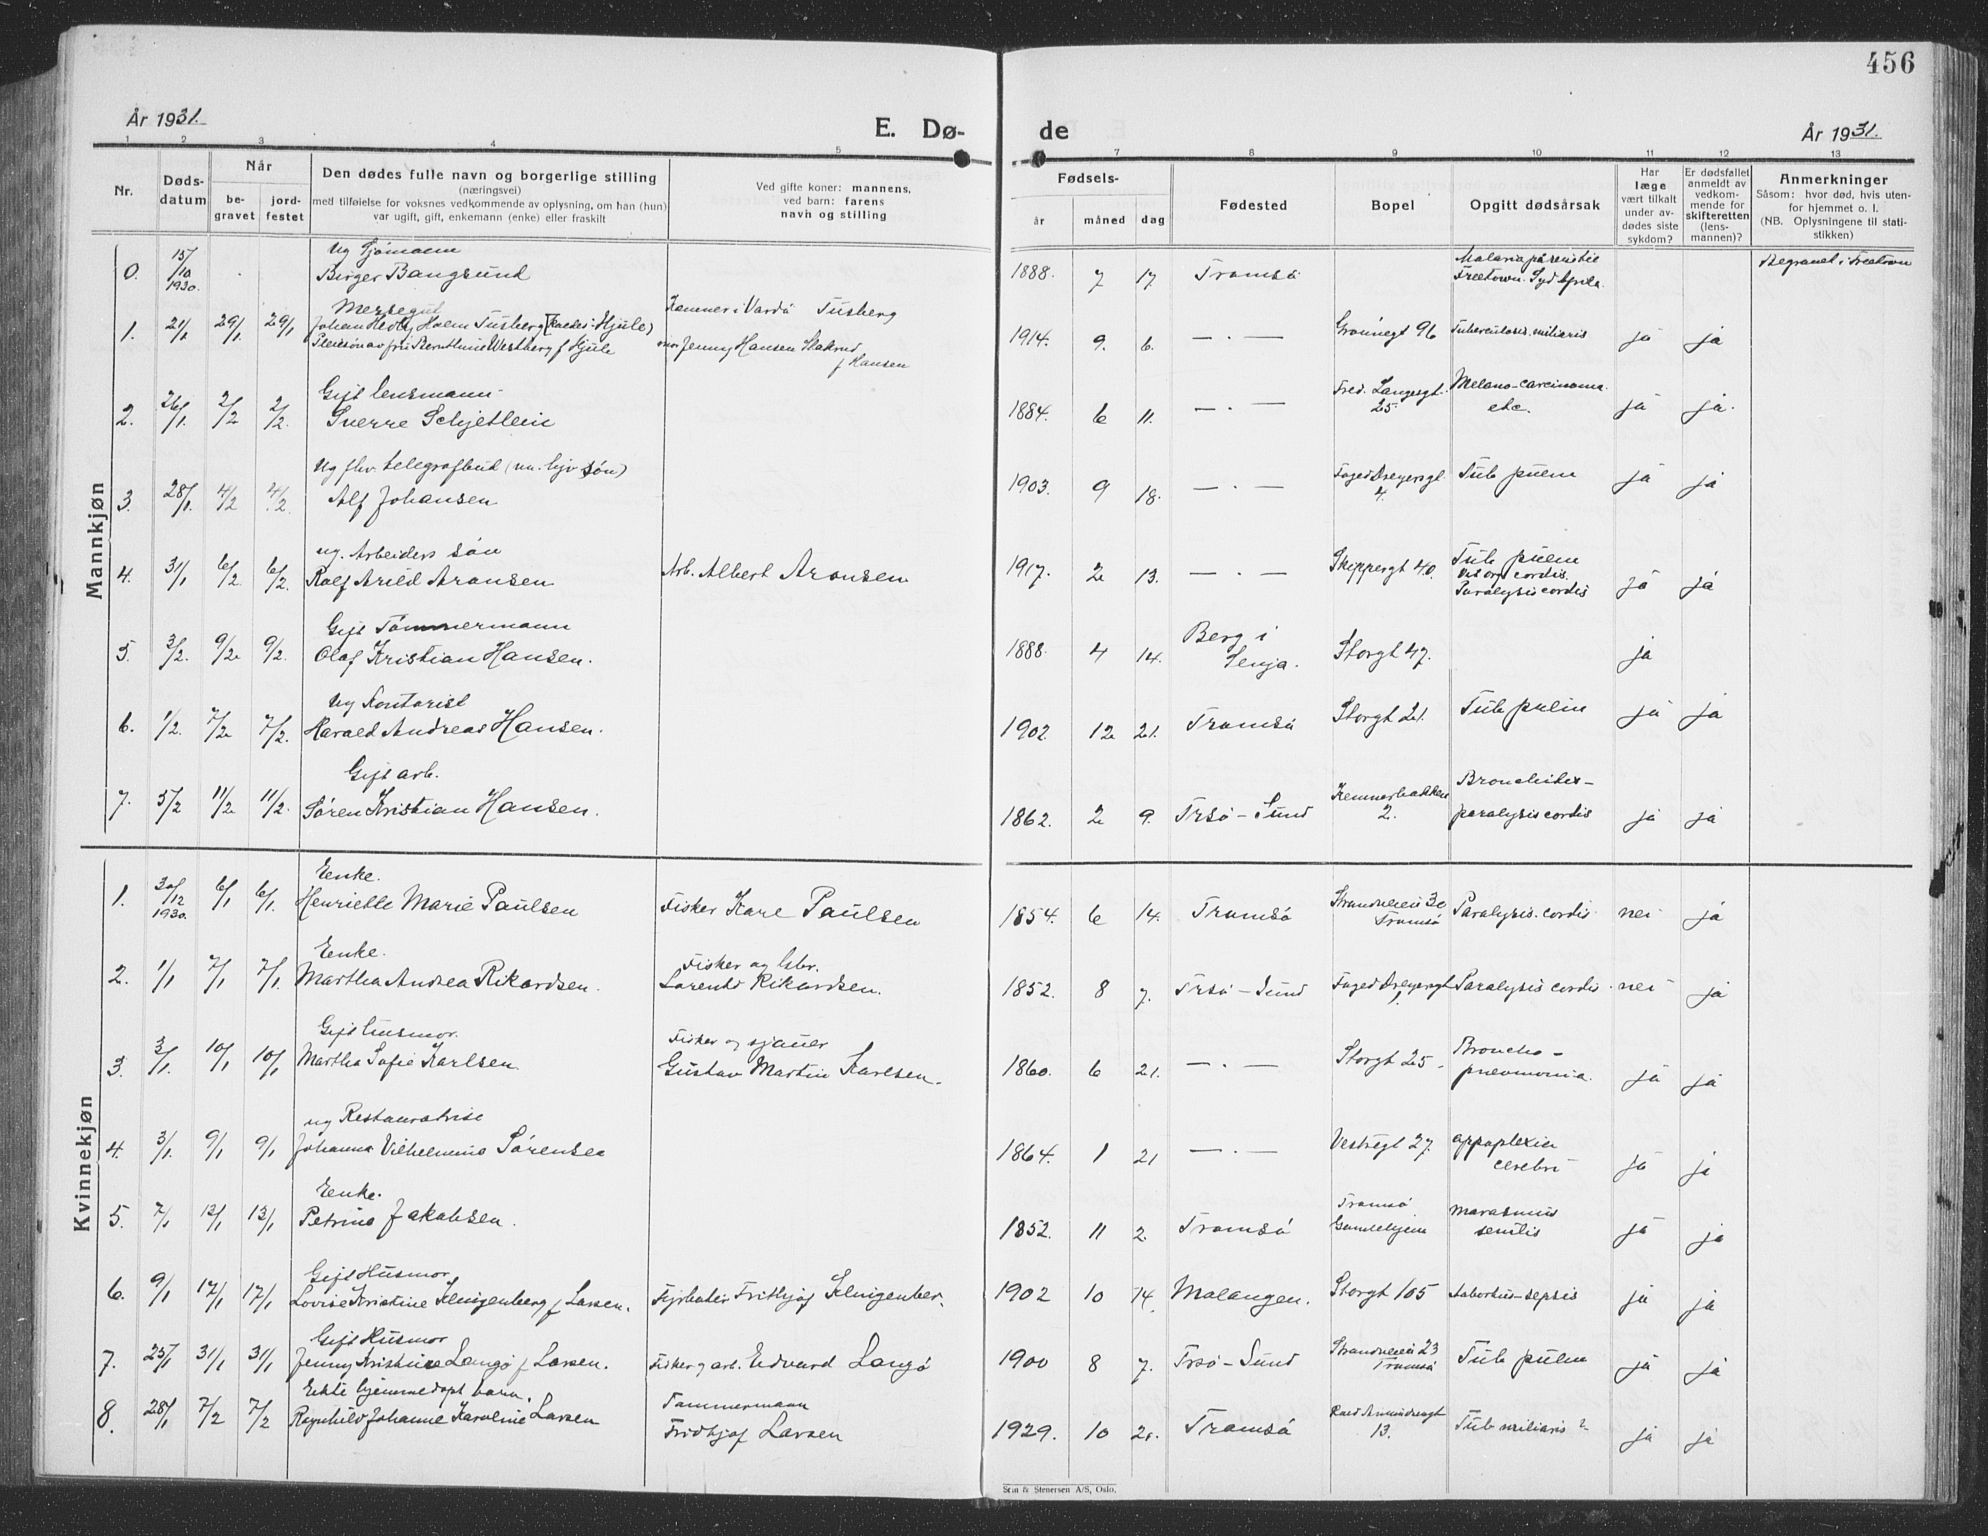 456
År 1931.
E. Dø-
de
År 1931.
1 2 3 4 5 7 8 9 10 11 12 13
Nr.
Døds-
datum
Når
be-
gravet
jord-
festet
Den dødes fulle navn og borgerlige stilling
(næringsvei)
med tilføielse for voksnes vedkommende av oplysning, om han (hun)
var ugift, gift, enkemann (enke) eller fraskilt
Ved gifte koner: mannens,
ved barn: farens
navn og stilling
Fødsels-
år måned dag
Fødested
Bopel
Opgitt dødsårsak
Har
læge
vært tilkalt
under av-
dødes siste
sykdom?
Er dødsfallet
anmeldt av
vedkom-
mende for
skifteretten
(lens-
mannen)?
Anmerkninger
Såsom: hvor død, hvis uten-
for hjemmet o. l.
(NB. Oplysningene til stati-
stikken)
Mannkjøn
0. 15/10 1930. Ug Sjømann
Birger Bangsund 1888. 7 17 Tromsø Malaria
Freetown. Syd Afrika. Begravet i Freetown
1. 21/1 29/1. 29/1 Johan Holm Tusberg (kaldes: Hjule)
Pleiesøn av fru Westberg f Hjule Kemner i Vardø Tusberg
Jenny Hansen
f Hansen 1914. 9. 6. — . — Grønnegt 96 Tuberculosis miliaris ja ja
2. 26/1. 2/2 2/2. Gift lensmann
Sverre Schjetlein 1884. 6 11. — . — Fred. Langesgt.
25. Melano-carcinoma
etc. ja ja.
3. 28/1. 4/2 4/2. Ug fhv. telegrafbud
Alf Johansen 1903. 9 18. — . — Foged Dreyersgt
4. Tub pulm ja ja
4. 31/1 6/2 6/2. ug. Arbeiders søn
Rolf Arild Aronsen Arb. Albert Aronsen 1917. 2 13. — . — Skippergt 40. Tub pulm
Vit org cordis.
Paralysis cordis ja ja
5. 3/2. 9/2 9/2. Gift Tømmermann
Olaf Kristian Hansen. 1888. 4 14. Berg i
Senja. Storgt 47. ja
6. 1/2. 7/2 7/2. Ug Kontorist
Harald Andreas Hansen. 1902 12 21. Tromsø Storgt 21. Tub pulm ja ja
7. 5/2 11/2 11/2. Gift arb.
Søren Kristian Hansen. 1862. 2 9. Trsø-Sund Kemnerbakken
2. Bronchites-
paralysis cordis ja ja
Kvinnekjøn
1. 30/12 1930. 6/1 6/1. Enke.
Henriette Marie Paulsen Fisker Kare Paulsen 1854. 6 14. Tromsø Strandveien 30
Tromsø Paralysis cordis nei ja
2. 1/1 7/1 7/1. Enke.
Martha Andrea Rikardsen. Fisker og
Lorents Rikardsen. 1852. 8 7. Trsø-Sund Foged Dreyersgt
1. Paralysis cordis. nei ja
3. 3/1. 10/1 10/1 Gift husmor.
Martha Sofie Karlsen. Fisker og sjauer
Gustav Martin Karlsen. 1860. 6 21. — . — Storgt 25. Broncho-
pneumonia. ja ja
4. 3/1. 9/1 9/1 ug Restauratrise
Johanna Vilhelmine Sørensen 1864. 1 21 — . — Vestregt 27. appoplexia
cerebri ja ja
5. 7/1 13/1 13/1 Enke.
Petrine Jakobsen. 1852. 11 2. Tromsø Tromsø
Gamlehjem marasmus
senilis ja ja
6. 9/1 17/1 17/1 Gift Husmor.
Lovise Kristine Klingenberg f Larsen. Fyrbøter Frithjof Klingenber. 1902 10 14. Malangen. Storgt 105 Abortus-sepsis ja ja
7. 25/1 31/1 31/1 Gift Husmor
Jenny Kristine Langø f Larsen. Fisker og arb. Edvard Langø 1900 8 7. Trsø-Sund Strandveien 23
Tromsø Tub pulm ja ja
8. 28/1 7/2 7/2 Ekte hjemmedøpt barn.
Ragnhild Johanne Karoline Larsen Tømmermann
Fridtjof Larsen 1929. 10 20. Tromsø Roald Amundsensgt
13. Tub miliaris ? ja ja
Stin & Stenersen A/S, Oslo.